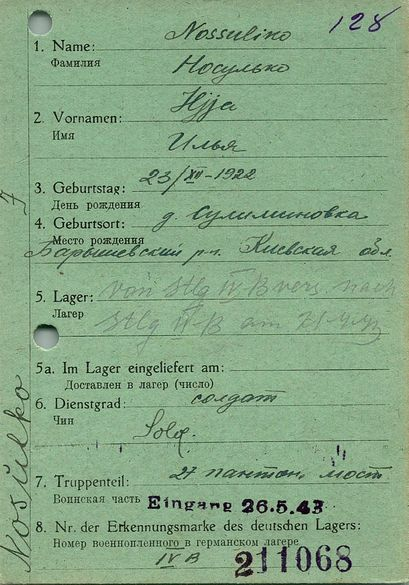 128
1. Name: Nossulko
Фамилия Носулько
2. Vornamen: Ilja
Имя Илья
3. Geburtstag: 23/XII-1922
День рождения
4. Geburtsort: д. Сулиминовка
Место рождения
Барышевский р-н. Киевская обл.
5. Lager: von Stlg IV B vers. nach
Лагер Stlg III-B am 21.4.43
5a. Im Lager eingeliefert am:
Доставлен в лагер (число)
6. Dienstgrad: солдат
Чин
Sold.
7. Truppenteil: 27 пантон. мост
Воинская часть Eingang 26.5.43
8. Nr. der Erkennungsmarke des deutschen Lagers:
Номер военнопленного в германском лагере
IV B 211068
Nosulko J